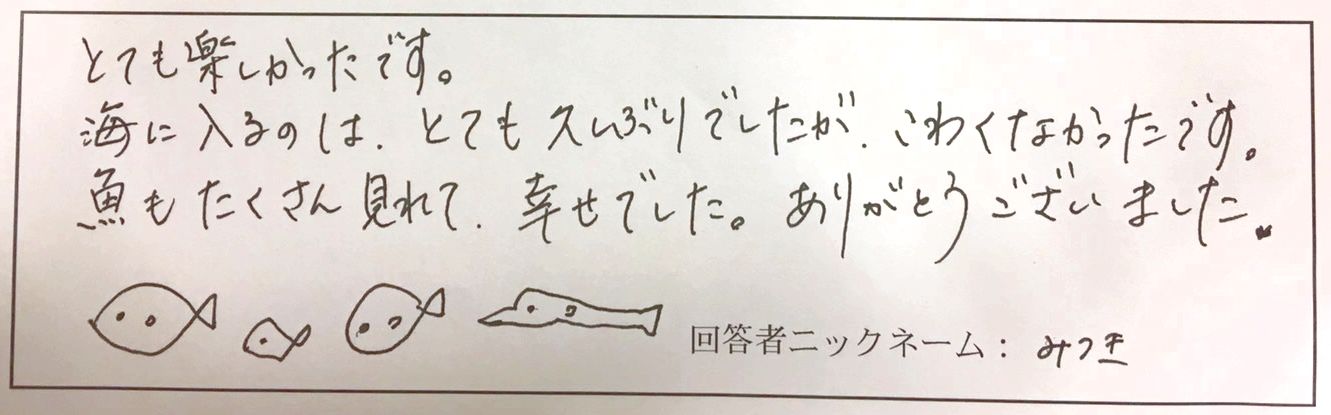 とても楽しかったです。
海に入るのは、とても久しぶりでしたが、こわくなかったです。
魚もたくさん見れて、幸せでした。ありがとうございました。
回答者ニックネーム：みつき